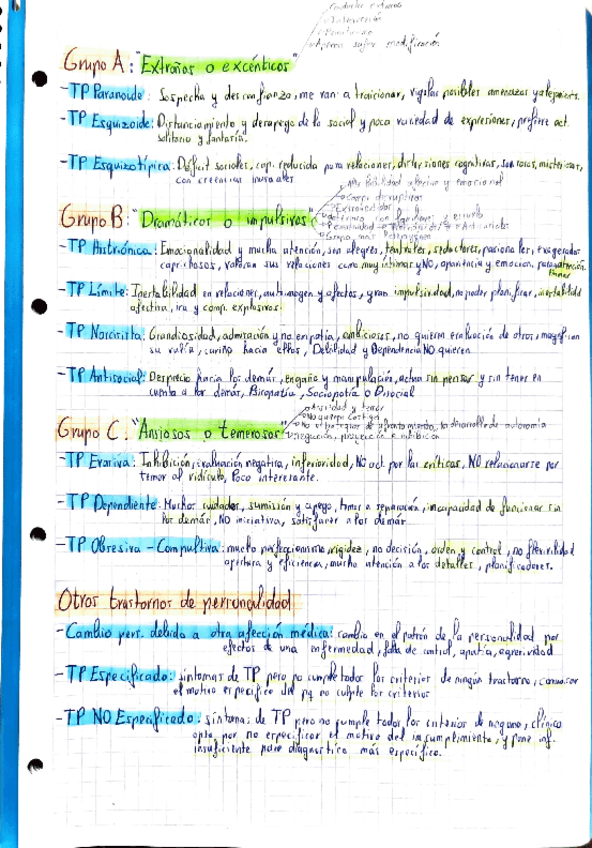 Conducta extraña
Grupo A: "Extraños o excéntricos"
- TP Paranoide: Sospecha y desconfianza, me van a traicionar, vigilar posibles amenazas
- TP Esquizoide: Distanciamiento y desapego de lo social y poca variedad de expresiones, prefiere act.
solitario y fantasía.
- TP Esquizotípica: Déficit sociales, cap. reducida para relaciones, distorsiones cognitivas, misteriosas,
con creencias inusuales
Grupo B: "Dramáticos o impulsivos"
- TP Histriónica: Emocionalidad y mucha atención, son alegres, teatrales, seductores, pasionales, exagerados
caprichosos, valoran sus relaciones como muy íntimas y NO, apariencia y emoción para atención
- TP Límite: Inestabilidad en relaciones, autoimagen y afectos, gran impulsividad, no poder planificar, inestabilidad
afectiva, ira y comp. explosivos.
- TP Narcisita: Grandiosidad, admiración y no empatía, ambiciosos, no quieren evaluación de otros, magnifican
su valía, cariño hacia ellos, Debilidad y Dependencia NO quieren
- TP Antisocial: Desprecio hacia los demás, engaño y manipulación, actua sin pensar y sin tener en
cuenta a los demás, Psicopatía, Sociopatía o Disocial
Ansiedad y temor
Grupo C: "Ansiosos o temerosos"
negación, proyección e inhibición
- TP Evativa: Inhibición, evaluación negativa, inferioridad, NO act. por las críticas, NO relacionarse por
temor al ridículo, Poco interesante.
- TP Dependiente: Muchos cuidados, sumisión y apego, temor a separación, incapacidad de funcionar sin
los demás, NO iniciativa, satisfacer a los demás
- TP Obsesiva - Compulsiva: mucho perfeccionismo, rigidez, no decisión, orden y control, no flexibilidad
apertura y eficiencia, mucha atención a los detalles, planificadores.
Otros trastornos de personalidad
- Cambio pers. debido a otra afección médica: cambio en el patrón de la personalidad por
efectos de una enfermedad, falta de control, apatía, agresividad
- TP Especificado: síntomas de TP pero no cumple todos los criterios de ningún trastorno, comunicar
el motivo específico del pq no cumple los criterios
- TP NO Especificado: síntomas de TP pero no cumple todos los criterios de ninguno, clínico
opta por no especificar el motivo del incumplimiento, y pone inf.
insuficiente para diagnóstico más específico.